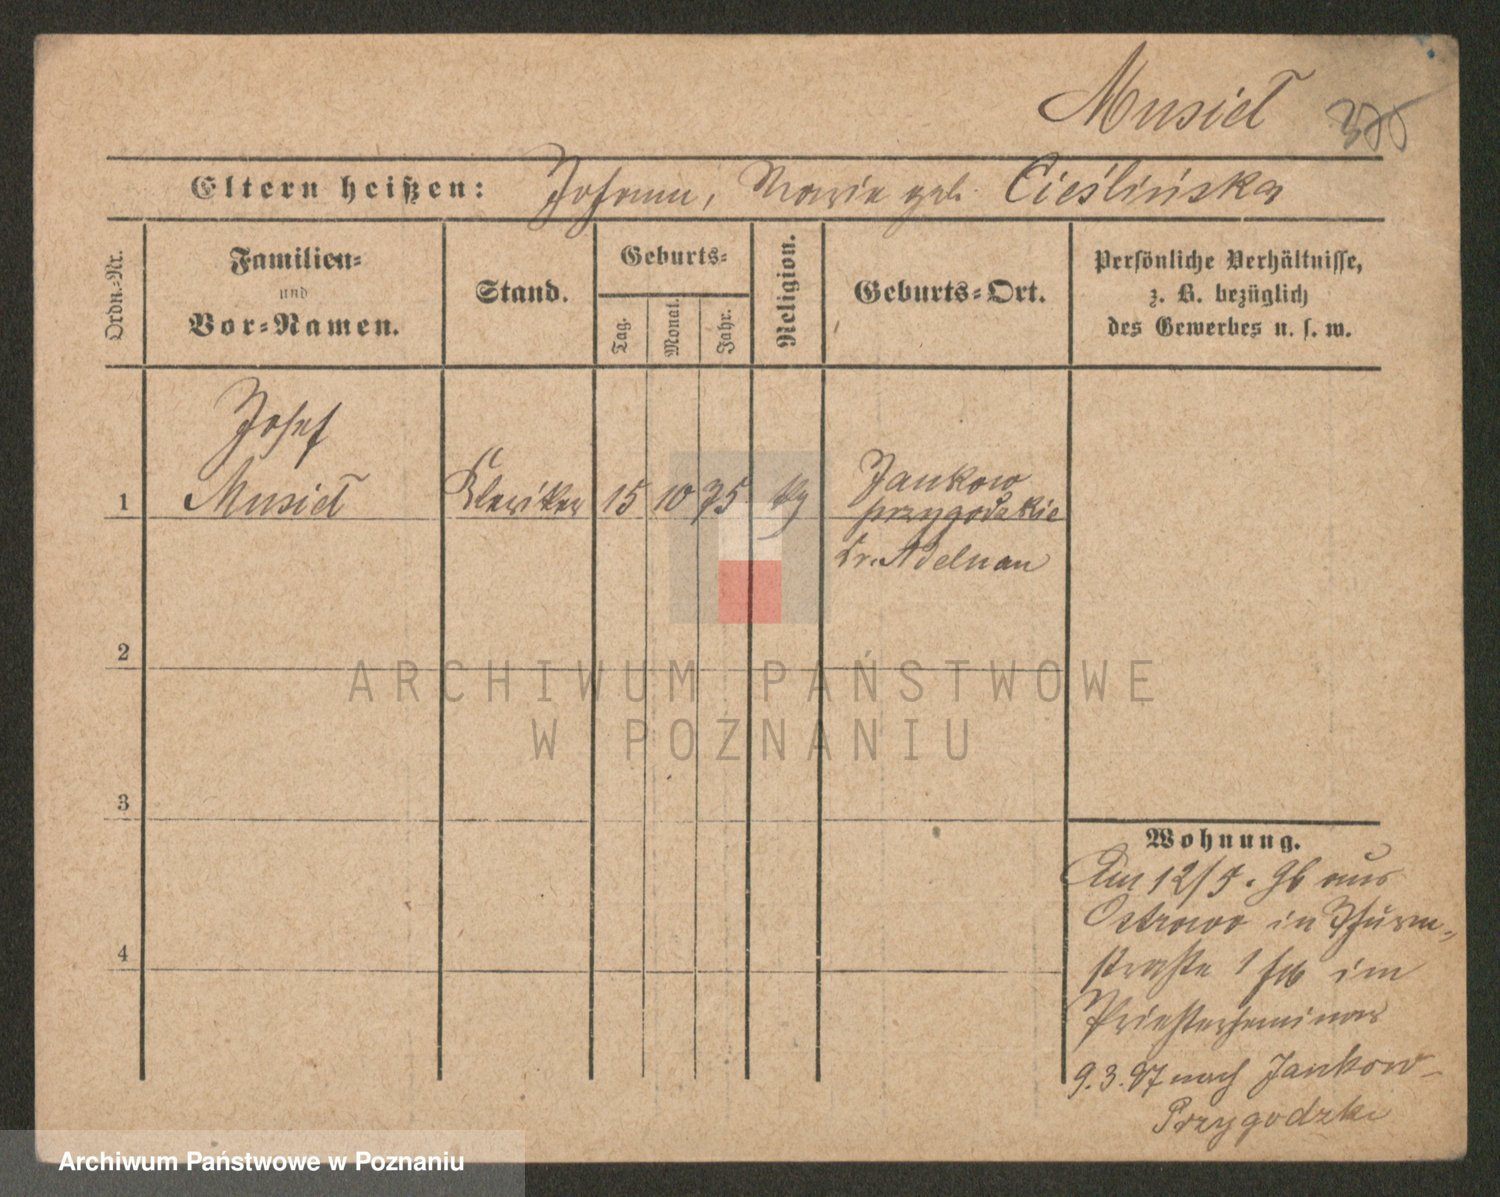 Musiel
Eltern heißen: Johann, Marie geb. Cieślińska
Ordn.-Nr.
Familien-
und
Vor-Namen.
Stand.
Geburts-
Tag.
Monat.
Jahr.
Religion.
Geburts-Ort.
Persönliche Verhältnisse,
z. B. bezüglich
des Gewerbes u. s. w.
Josef
1 Musiel Kleriker 15 10 75 Jankow
przygodzkie
Kr. Adelnau
2
3
4
Wohnung.
Am 12/5. 96 aus
Ostrowo in Thurm-
straße 1 im
Priesterseminar
9.3.97 nach Jankow-
Przygodzki
ARCHIWUM PAŃSTWOWE
W POZNANIU
Archiwum Państwowe w Poznaniu